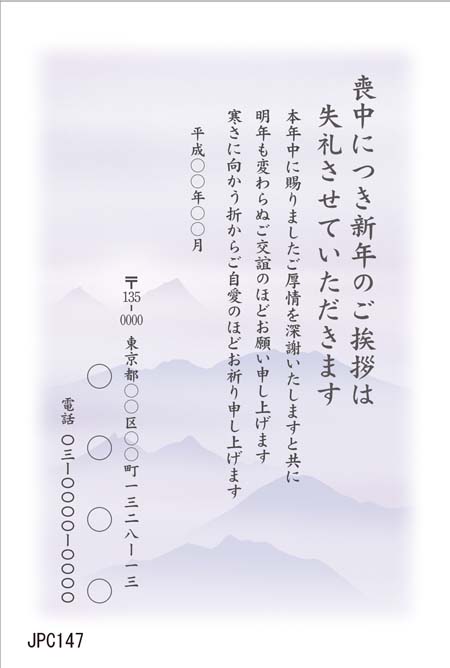 喪中につき新年のご挨拶は
失礼させていただきます
本年中に賜りましたご厚情を深謝いたしますと共に
明年も変わらぬご交誼のほどお願い申し上げます
寒さに向かう折からご自愛のほどお祈り申し上げます
平成〇〇年〇〇月
〒135-0000 東京都〇〇区〇〇町一三二八ー一三
〇〇〇〇
電話 〇三ー〇〇〇〇ー〇〇〇〇
JPC147